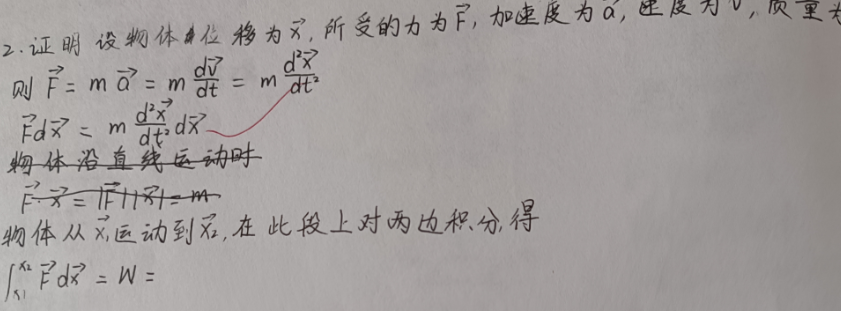 2.证明 设物体位移为x⃗,所受的力为F⃗,加速度为a⃗,速度为v⃗,质量为
则 F⃗ = m a⃗ = m dv⃗/dt = m d²x⃗/dt²
F⃗dx⃗ = m d²x⃗/dt² dx⃗
物体沿直线运动时
F⃗·x⃗ = |F⃗||x⃗| = m
物体从x⃗₁运动到x⃗₂,在此段上对两边积分,得
∫_{x₁}^{x₂} F⃗dx⃗ = W =